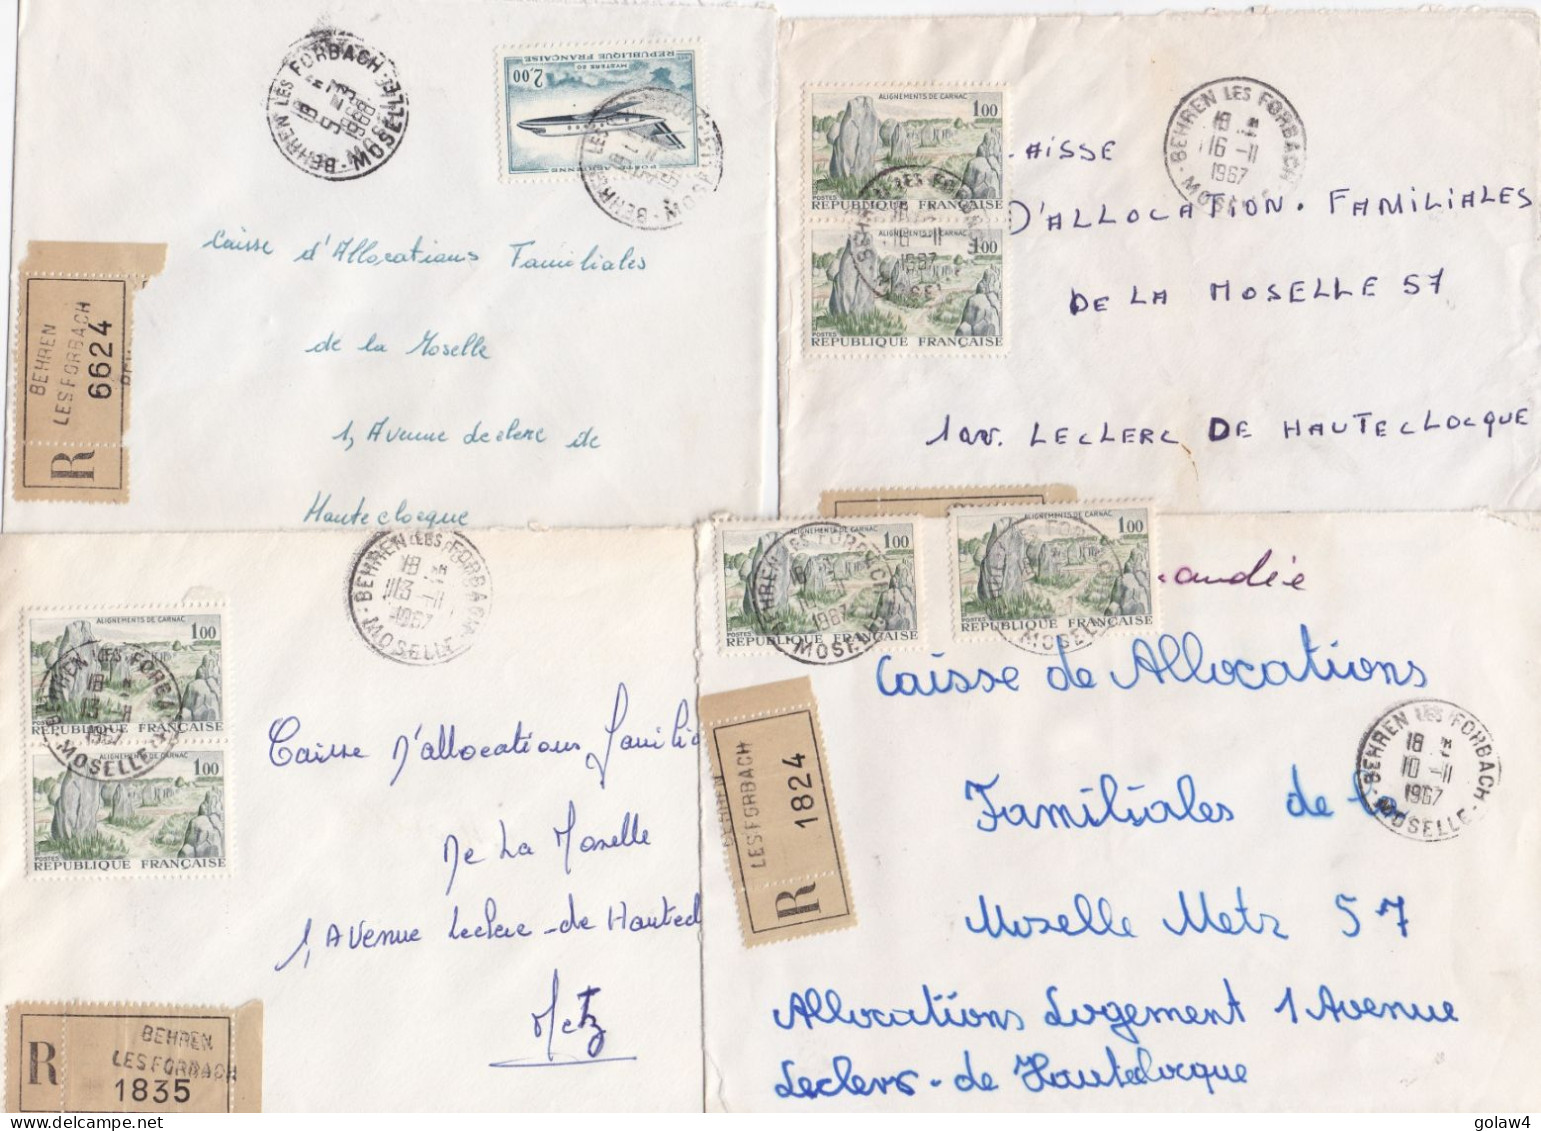 BEHREN LES FORBACH
MOSELLE
1968
2,00
MYSTERE 20
REPUBLIQUE FRANÇAISE
POSTE AERIENNE
Caisse d'Allocations Familiales
de la Moselle
1, Avenue Leclerc de
Hauteclocque
BEHREN
LES FORBACH
6624
R
ALIGNEMENTS DE CARNAC
1,00
POSTES
REPUBLIQUE FRANÇAISE
ALIGNEMENTS DE CARNAC
1,00
POSTES
REPUBLIQUE FRANÇAISE
BEHREN LES FORBACH
18 H
16 -11
1967
MOSELLE
AISSE
D'ALLOCATION. FAMILIALES
DE LA MOSELLE 57
1 av. LECLERC DE HAUTECLOCQUE
BEHREN LES FORBACH
18 H
13 -11
1967
MOSELLE
ALIGNEMENTS DE CARNAC
1,00
REPUBLIQUE FRANÇAISE
ALIGNEMENTS DE CARNAC
1,00
POSTES
REPUBLIQUE FRANÇAISE
Caisse d'allocations familia
de La Moselle
1, Avenue Leclerc-de Hautecl
Metz
R
BEHREN
LES FORBACH
1835
ALIGNEMENTS DE CARNAC
1,00
POSTES
REPUBLIQUE FRANÇAISE
ALIGNEMENTS DE CARNAC
1,00
POSTES
REPUBLIQUE FRANÇAISE
andée
Caisse de Allocations
Familiales de la
Moselle Metz 57
Allocations Logement 1 Avenue
Leclers-de Hauteclocque
BEHREN LES FORBACH
18 H
10 -11
1967
MOSELLE
BEHREN
LES FORBACH
1824
R
golaw4